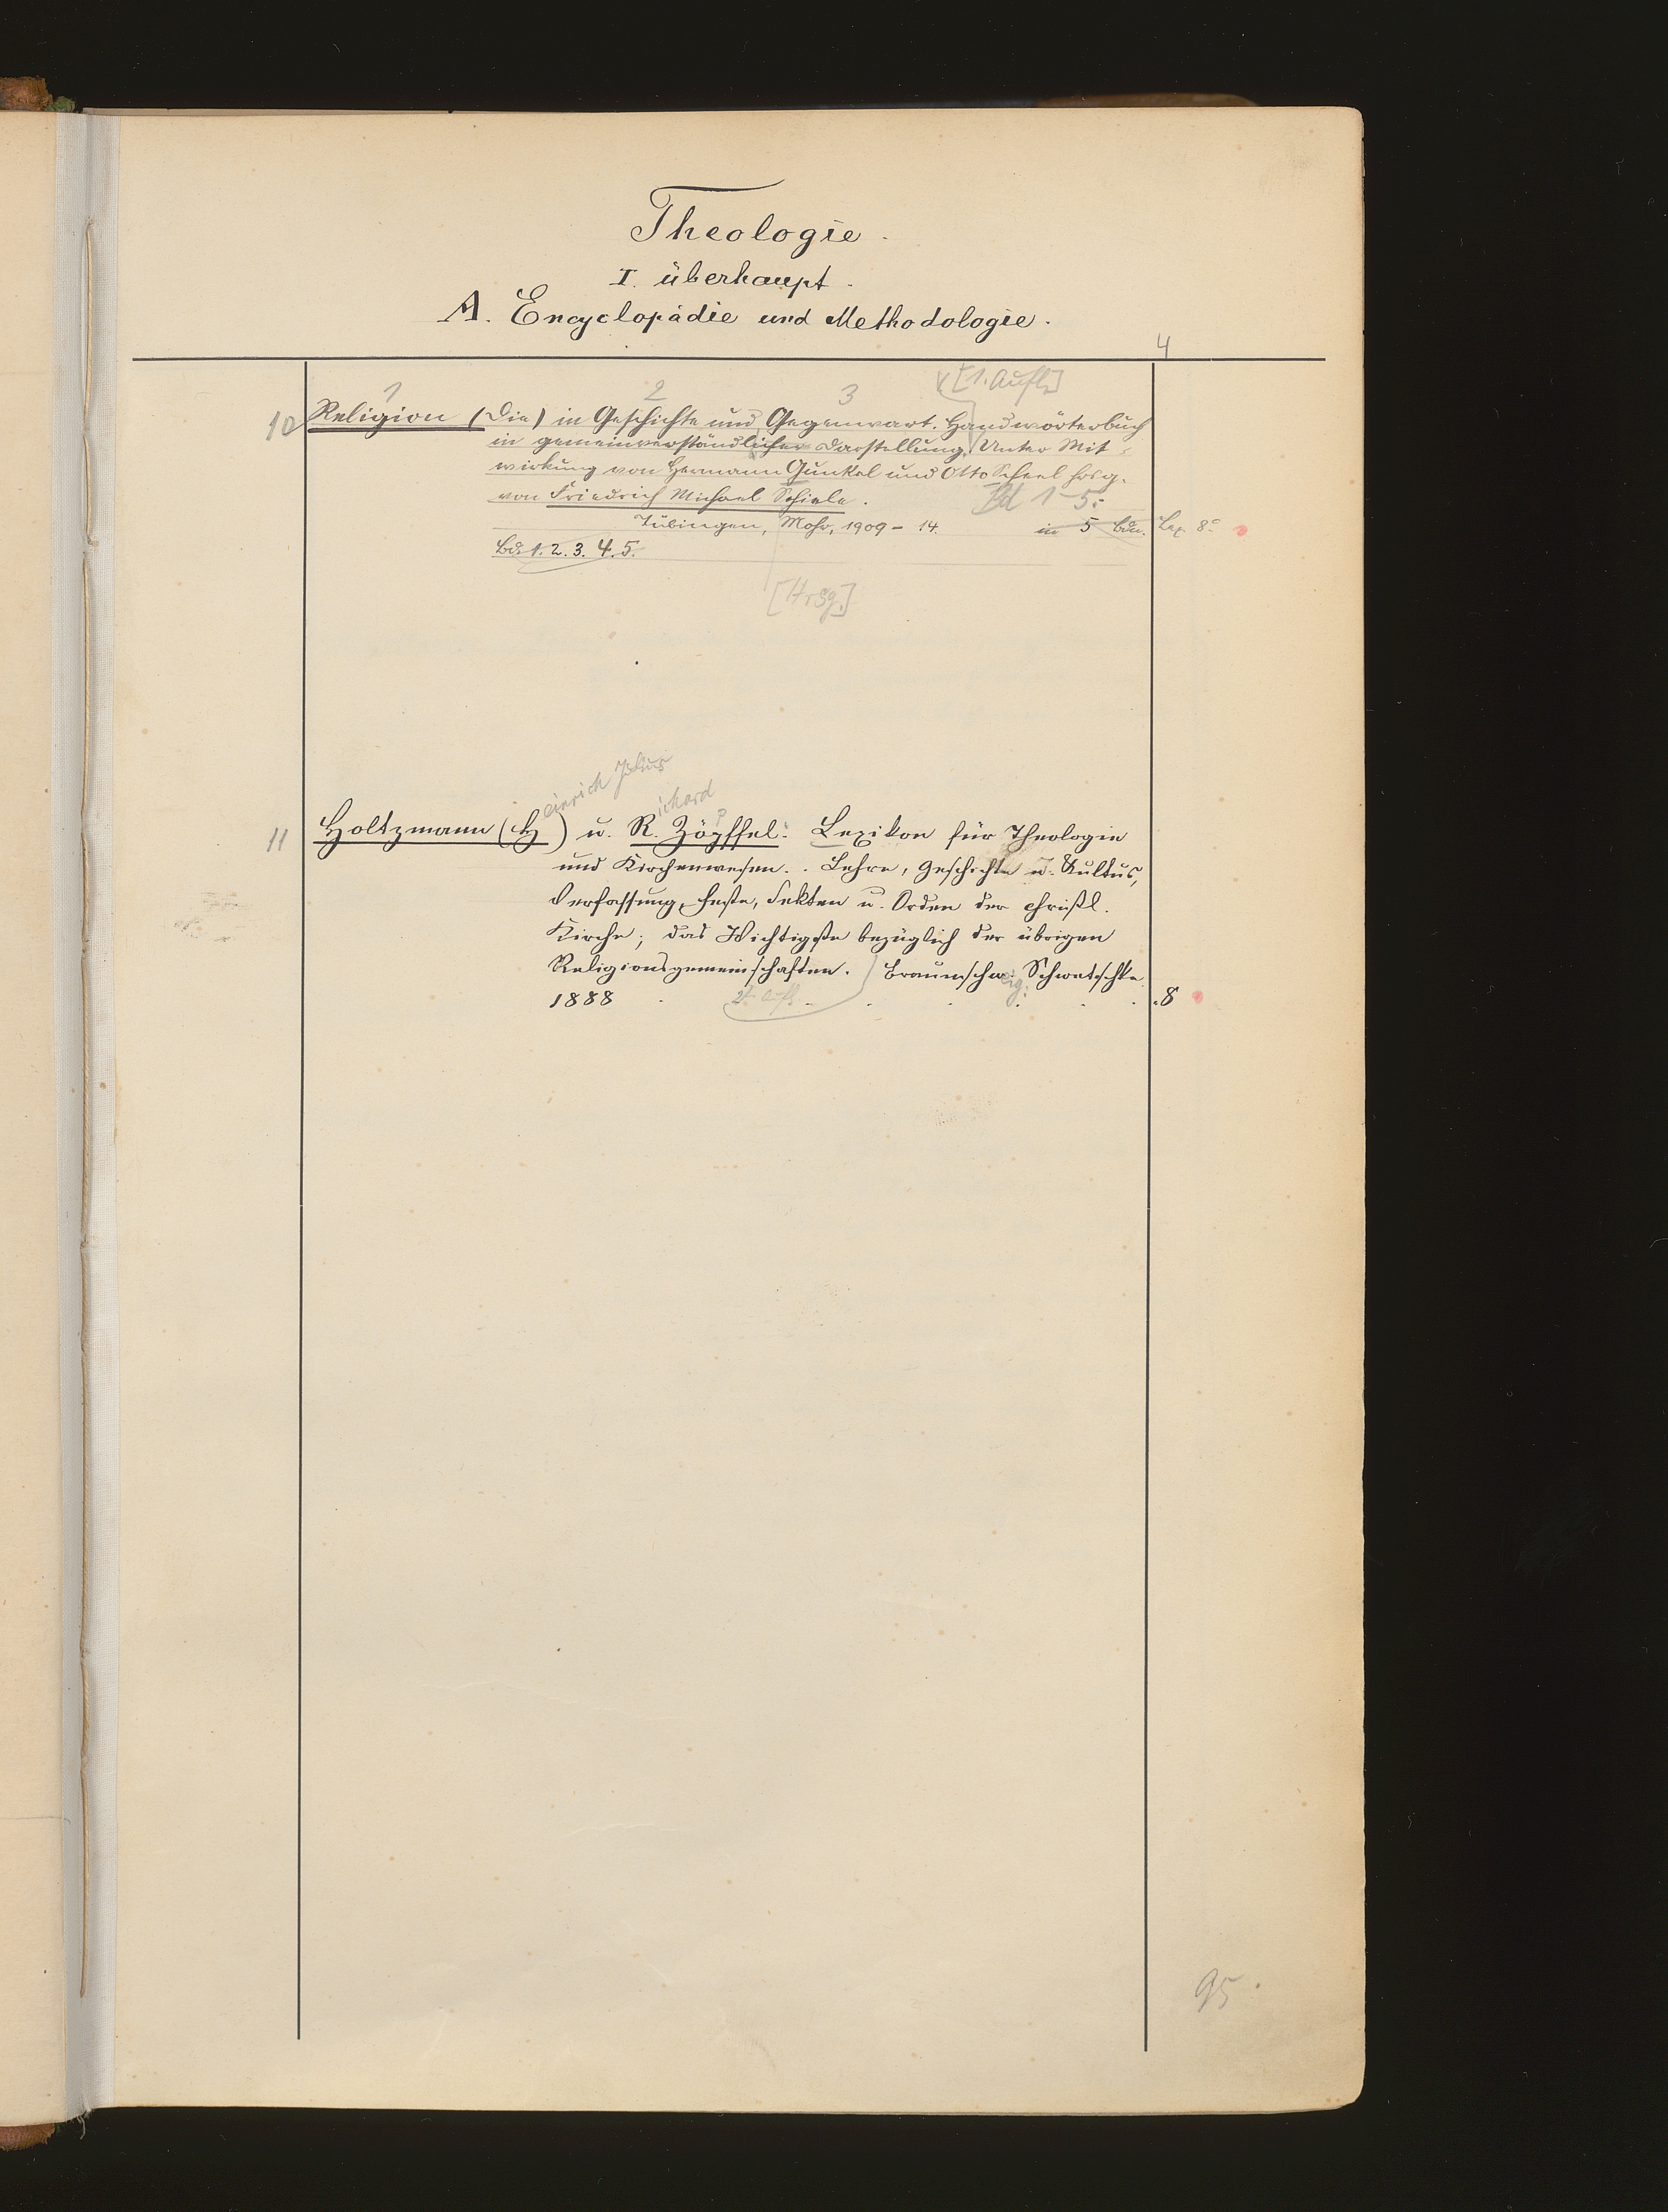 Theologie.
I. überhaupt.
A. Encyclopädie und Methodologie.
4
[1. Aufl.]
1 2 3
10 Religion (Die) in Geschichte und Gegenwart. Handwörterbuch
in gemeinverständlicher Darstellung. Unter Mit-
wirkung von Hermann Gunkel und Otto Scheel hrsg.
von Friedrich Michael Schiele. Bd 1-5.
Tübingen, Mohr, 1909-14. in 5 Bdn. Lex. 8°
Bd. 1. 2. 3. 4. 5.
[Hrsg.]
einrich Julius
ichard
11 Holtzmann (H) u. R. Zöpffel: Lexikon für Theologie
und Kirchenwesen. . Lehre, Geschichte u. Kultus,
Verfassung, Feste, Sekten u. Orden der christl.
Kirche; das Wichtigste bezüglich der übrigen
Religionsgemeinschaften. Braunschweig: Schwetschke
1888 2t. Aufl. 8
95.